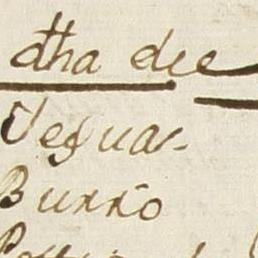 dha de
Yeguas
Burro